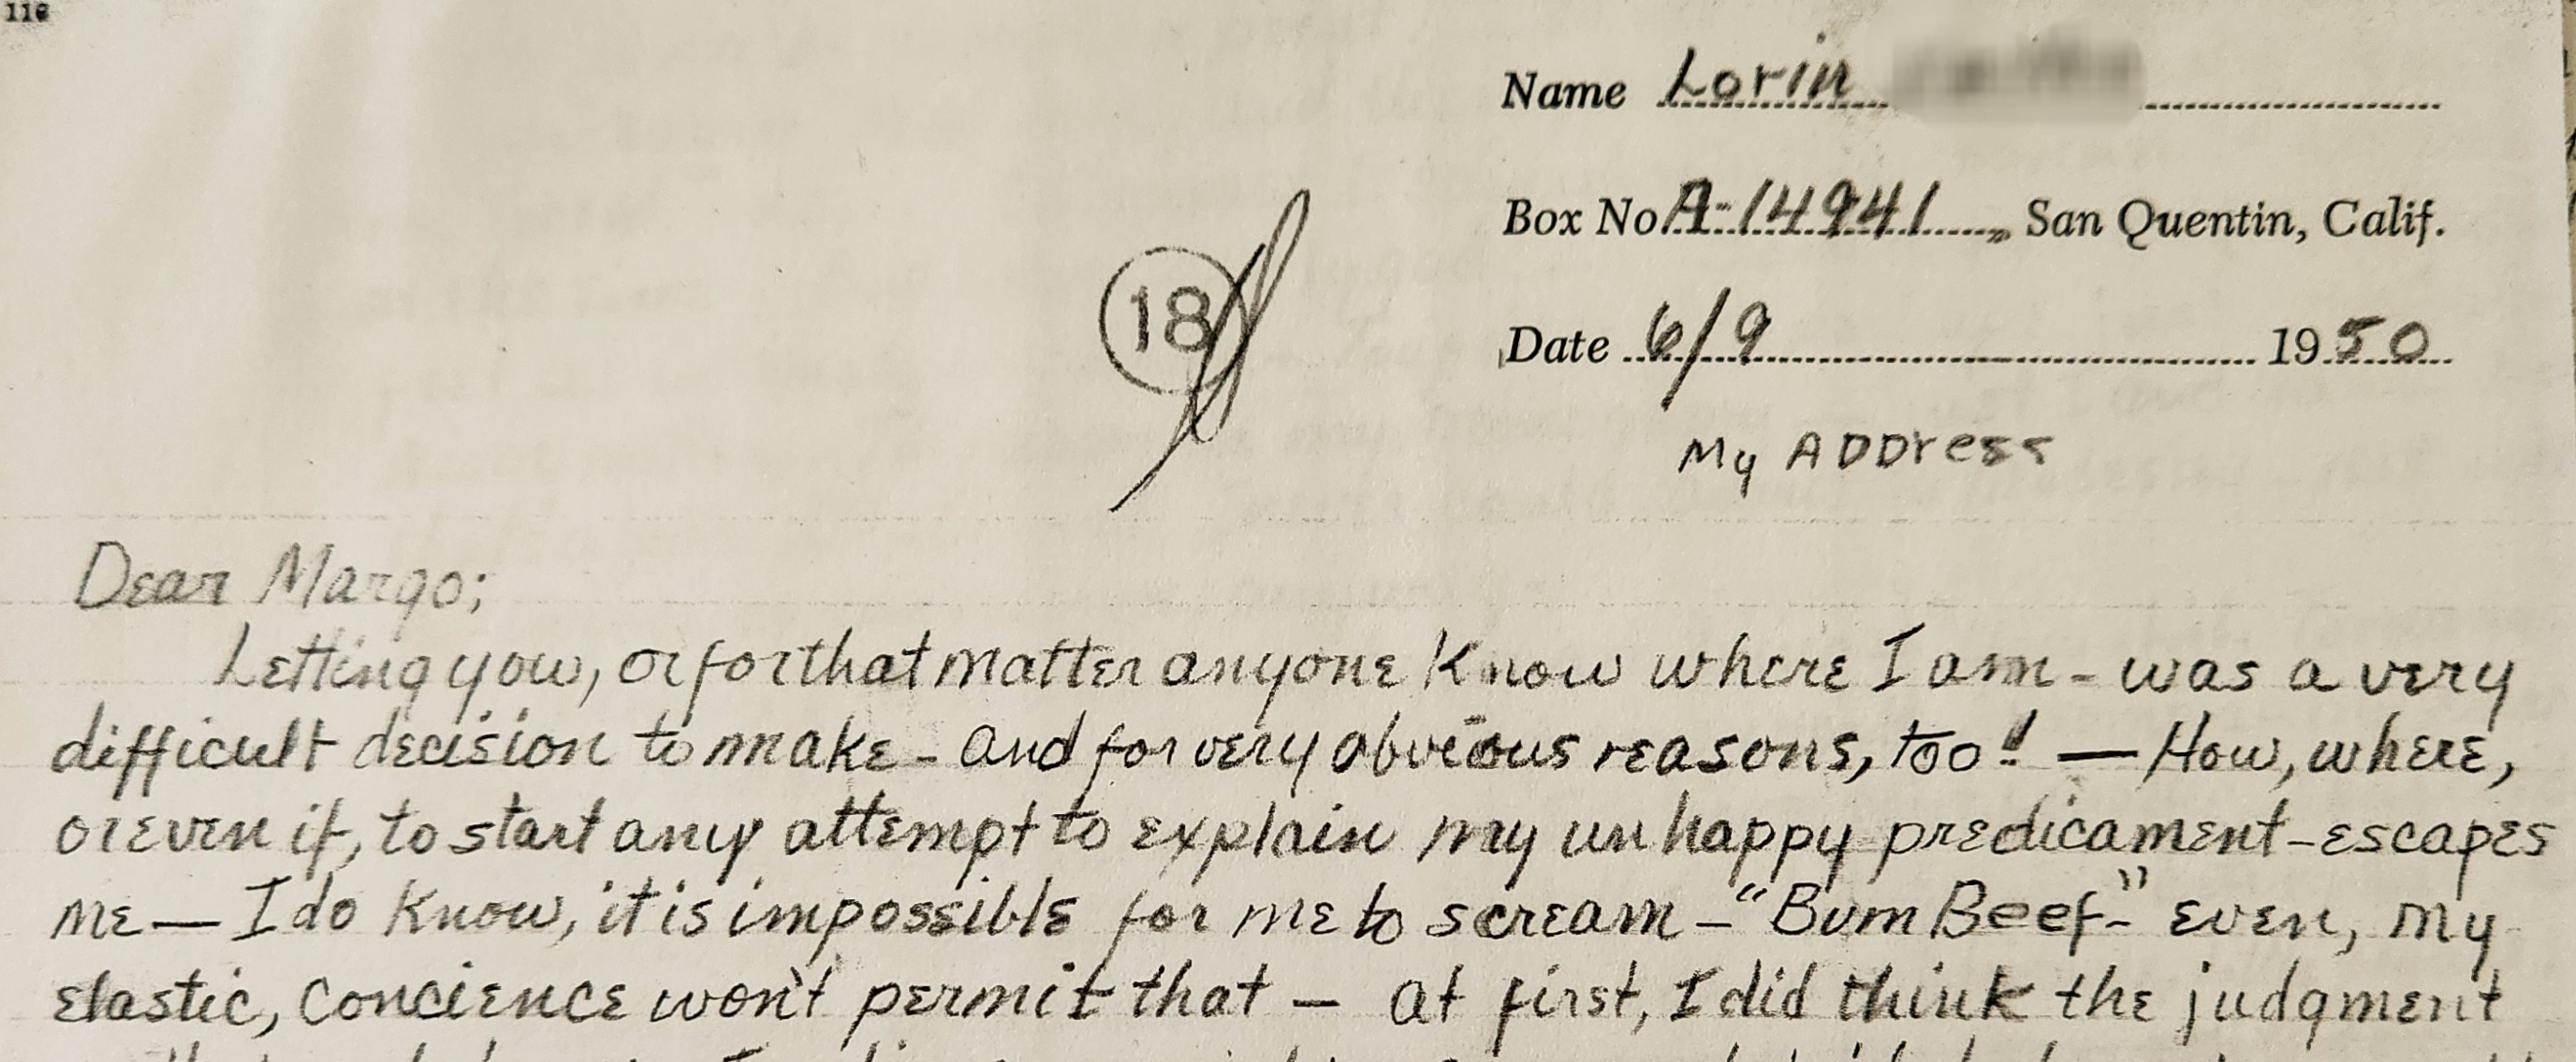 116
Name Lorin
Box No. A-14941, San Quentin, Calif.
Date 6/9 1950
18
My ADDress
Dear Margo;
Letting you, or for that matter anyone know where I am - was a very
difficult decision to make - and for very obvious reasons, too! — How, where,
or even if, to start any attempt to explain my unhappy predicament - escapes
me — I do know, it is impossible for me to scream - "Bum Beef -" even, my
elastic, concience won't permit that — at first, I did think the judgment